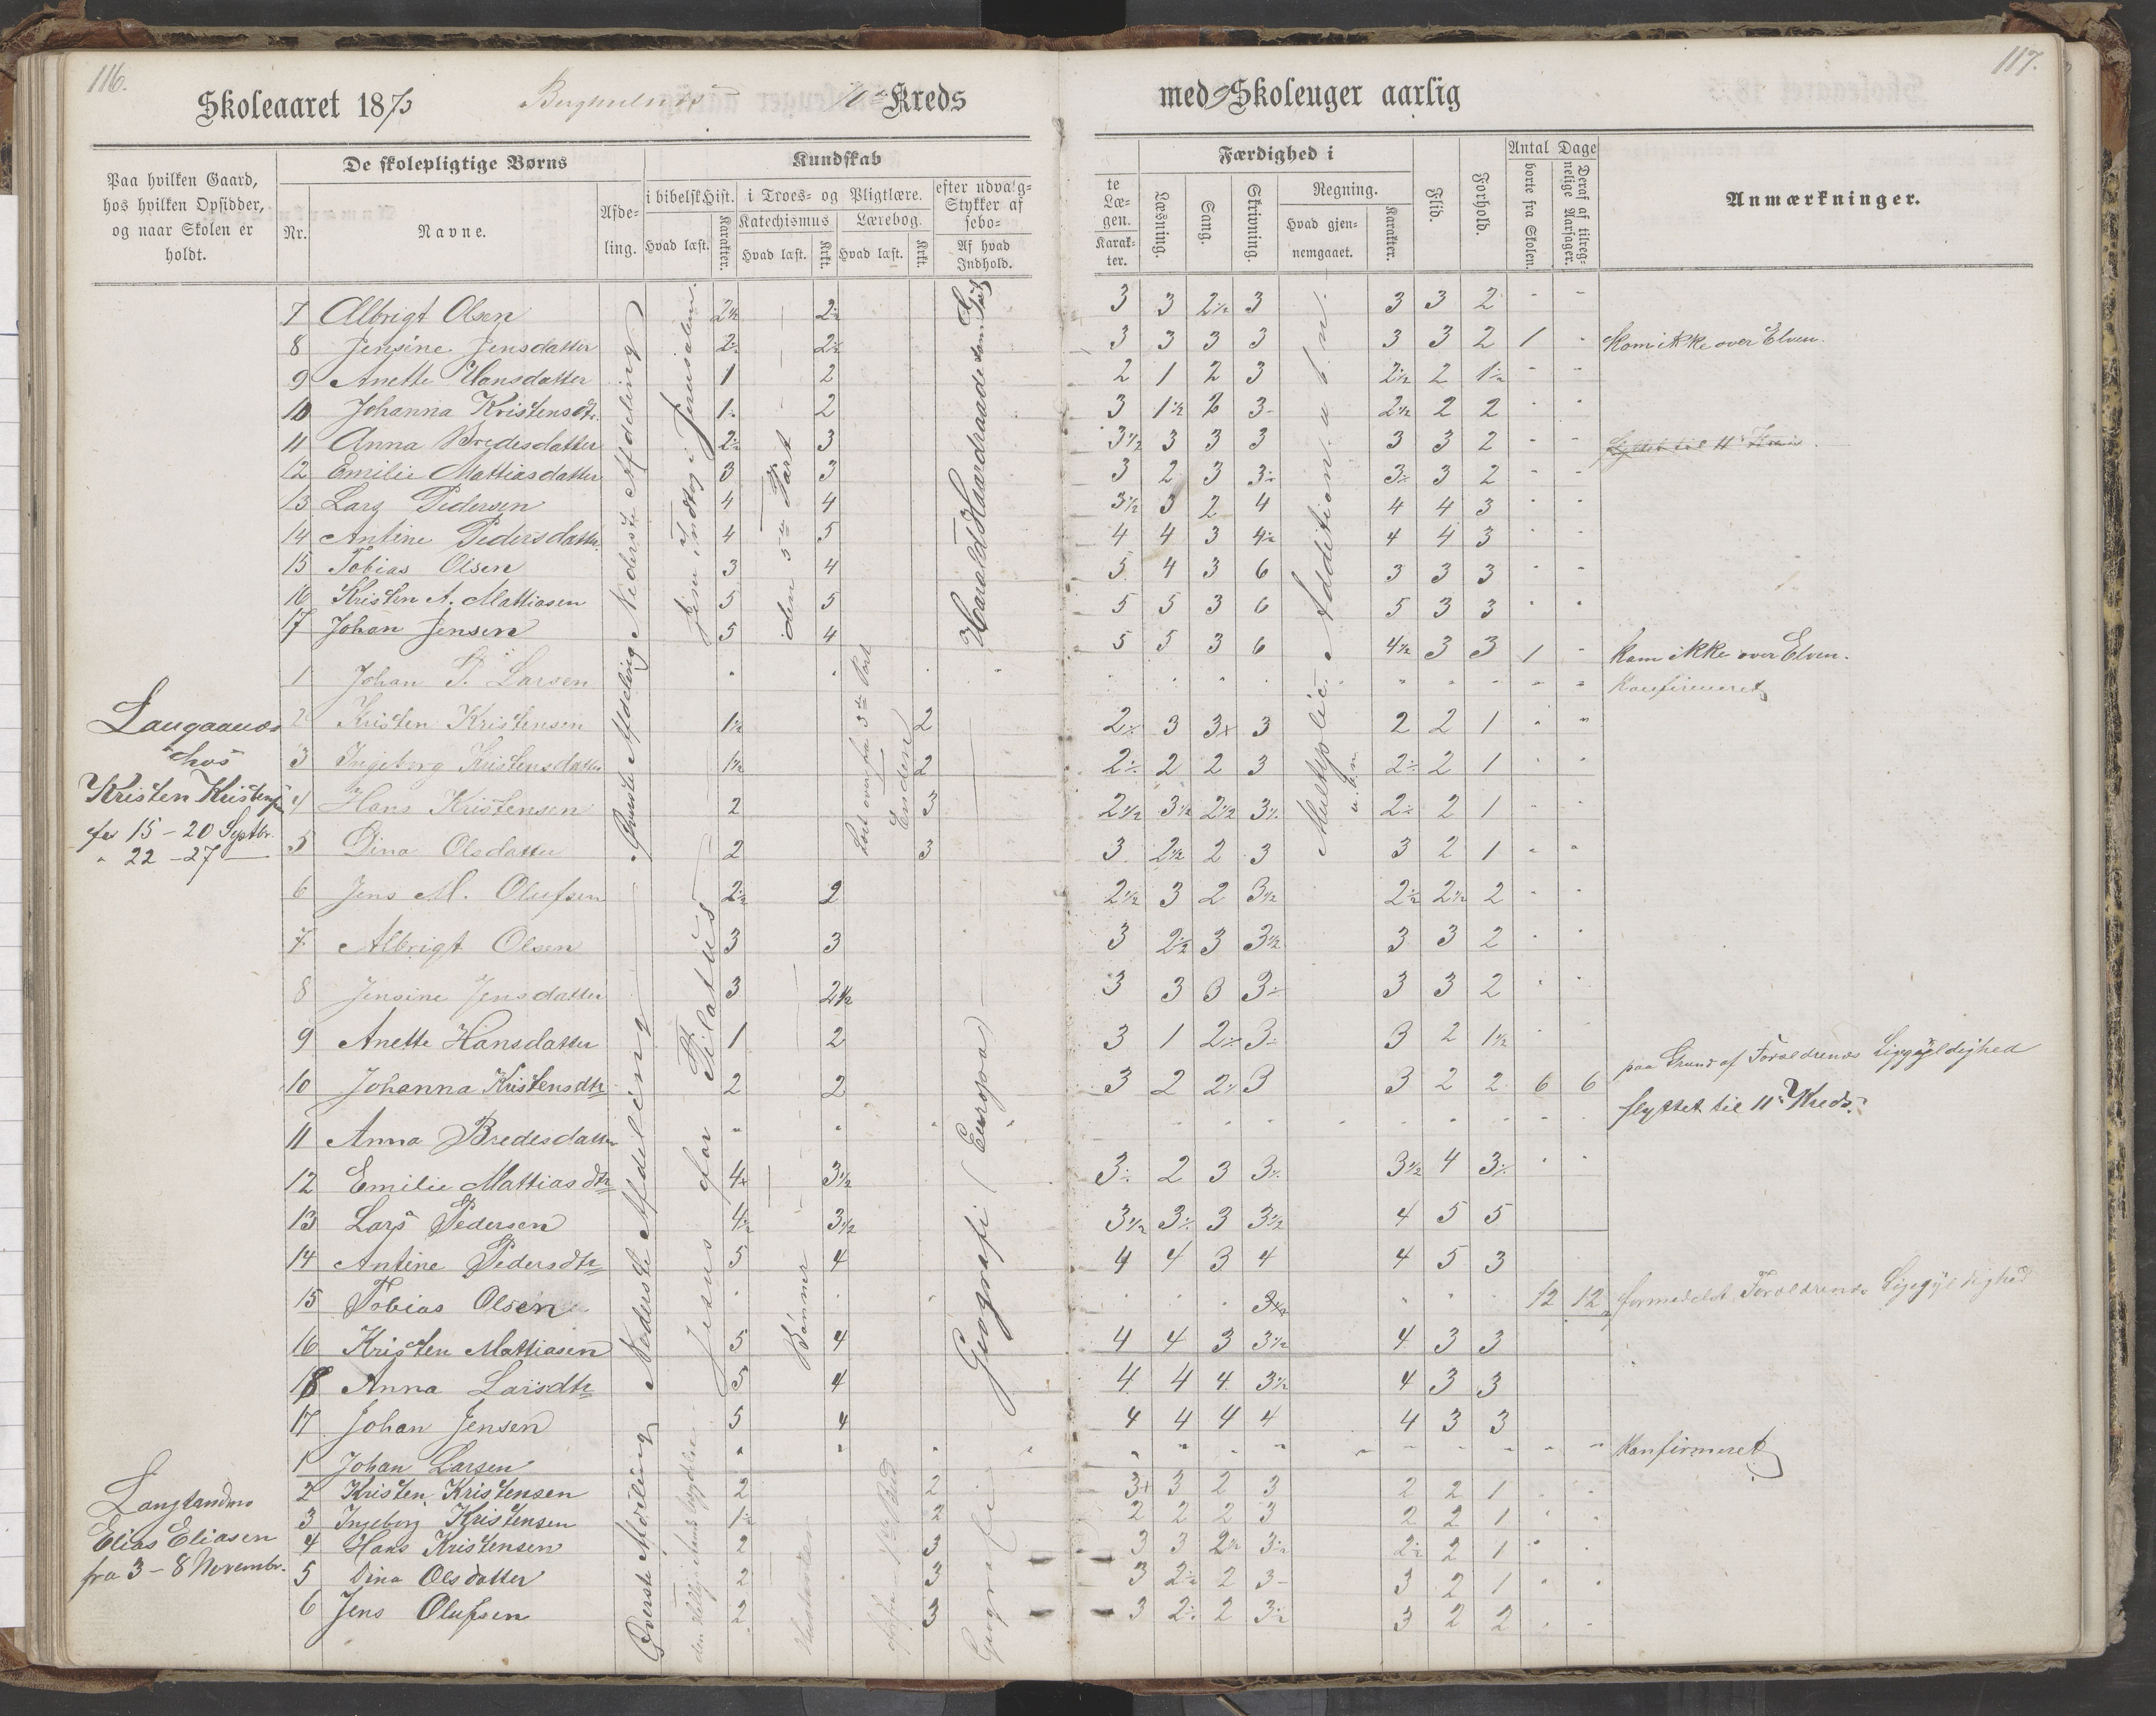 116.
117.
Skoleaaret 1873
Kreds
med 9 Skoleuger aarlig
Paa hvilken Gaard, hos hvilken Opsidder, og naar Skolen er holdt.
De skolepligtige Børns
Nr.
Navne.
Afdeling.
Kundskab
i bibelsk Hist.
i Troes- og Pligtlære.
Katechismus
Lærebog.
Hvad læst.
Karakter.
Hvad læst.
Krkt.
Hvad læst.
Krkt.
efter udvalg-
Stykker af
sebo-
Af hvad Indhold.
te Læ-
gen.
Karak-
ter.
Færdighed i
Læsning.
Sang.
Skrivning.
Regning.
Hvad gjen-
nemgaaet.
Karakter.
Flid.
Forhold.
Antal Dage
borte fra Skolen.
Deraf af tilreg-
nelige Aarsager.
Anmærkninger.
Nederste Afdeling
Jesu Indtog i Jerusalem
den 5te Part
Harald Haardraade
Addition
7 Albrigt Olsen 2½ 2½ 3 3 2½ 3 3 3 2
8 Jensine Jensdatter 2½ 2½ 3 3 3 3 3 3 2 1 Kom ikke over Elven.
9 Anette Hansdatter 1 2 2 1 2 3 2½ 2 1½
10 Johanna Kristensdtr. 1½ 2 3 1½ 2 3 2½ 2 2
11 Anna Bredesdatter 2½ 3 3½ 3 3 3 3 3 2 flyttet til 11' Kreds
12 Emilie Mattiasdatter 3 3 3 2 3 3½ 3½ 3 2
13 Lars Pedersen 4 4 3½ 3 2 4 4 4 3
14 Antine Pedersdatter 4 5 4 4 3 4½ 4 4 3
15 Tobias Olsen 3 4 5 4 3 6 3 3 3
16 Kristen A. Mattiasen 5 5 5 5 3 6 5 3 3
17 Johan Jensen 5 4 5 5 3 6 4½ 3 3 1 Kom ikke over Elven.
Langaanæs
hos
Kristen Kristensen
fra 15-20 Septbr.
" 22-27
Øverste Afdeling
3die Part
Enden
Multiplic.
1 Johan P. Larsen Konfirmeret
2 Kristen Kristensen 1½ 2 2½ 3 3+ 3 2 2 1
3 Ingeborg Kristensdatter 1½ 2 2½ 2 2 3 2½ 2 1
4 Hans Kristensen 2 3 2½ 3½ 2½ 3½ 2½ 2 1
5 Dina Olsdatter 2 3 3 2½ 2 3 3 2 1
Nederste Afdeling
Jesus for Pilatus
Bønner
Geografi (Europa)
6 Jens M. Olufsen 2½ 2 2½ 3 2 3½ 2½ 2½ 2
7 Albrigt Olsen 3 3 3 2½ 3 3½ 3 3 2
8 Jensine Jensdatter 3 2½ 3 3 3 3½ 3 3 2
9 Anette Hansdatter 1 2 3 1 2½ 3 3 2 1½
10 Johanna Kristensdtr 2 2 3 2 2½ 3 3 2 2 6 6 paa Grund af Forældrenes Ligegyldighed
11 Anna Bredesdatter flyttet til 11' Kreds.
12 Emilie Mattiasdtr 4+ 3½ 3½ 2 3 3½ 3½ 4 3½
13 Lars Pedersen 4½ 3½ 3½ 3½ 3 3½ 4 5 5
14 Antine Pedersdtr 5 4 4 4 3 4 4 5 3
15 Tobias Olsen 12 12 formedelst Forældrenes Ligegyldighed
16 Kristen Mattiasen 5 4 4 4 3 3½ 4 3 3
18 Anna Larsdtr 5 4 4 4 4 3½ 4 3 3
17 Johan Jensen 5 4 4 4 4 4 4 3 3
Langlandmo
Elias Eliasen
fra 3-8 Novembr.
Øverste Afdeling
Hustavlen
Geografi
1 Johan Larsen Konfirmeret
2 Kristen Kristensen 2 2 3+ 3 2 3 2 2 1
3 Ingeborg Kristensen 1½ 2 2 2 2 3 2 2 1
4 Hans Kristensen 2 3 3 3 2½ 3½ 2½ 2 1
5 Dina Olsdatter 2 3 3 2½ 2 3 3 2 1
6 Jens Olufsen 2 3 3 2½ 2 3½ 3 2 2